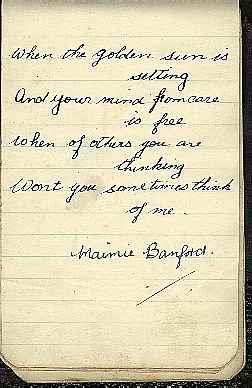 When the golden sun is
setting
And your mind from care
is free
When of others you are
thinking
Wont you sometimes think
of me.
Maimie Banford.